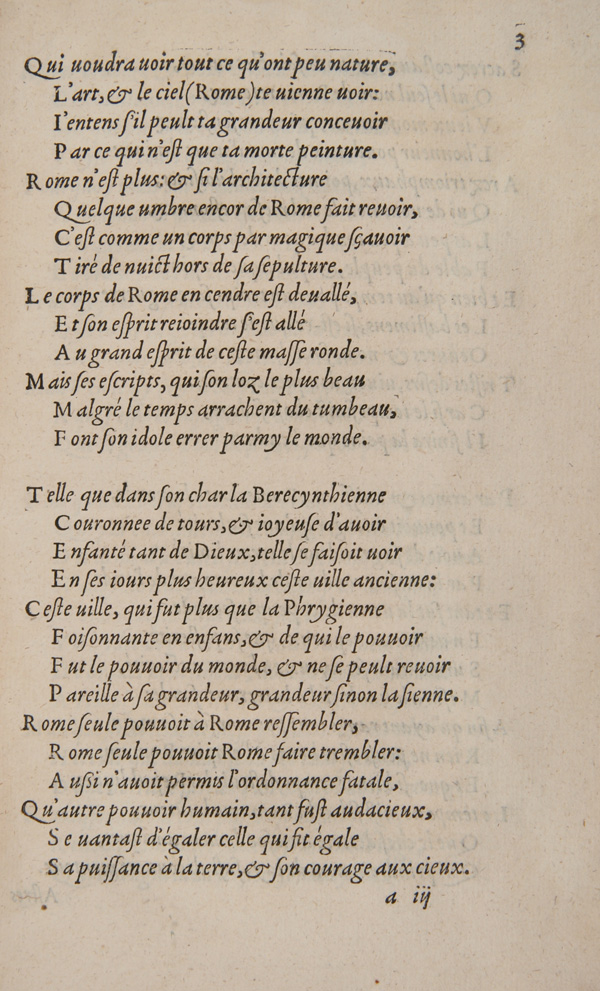 3
Qui uoudra uoir tout ce qu'ont peu nature,
L'art, & le ciel (Rome) te uienne uoir:
I'entens ſ'il peult ta grandeur conceuoir
Par ce qui n'eſt que ta morte peinture.
Rome n'eſt plus: & ſi l'architecture
Quelque umbre encor de Rome fait reuoir,
C'eſt comme un corps par magique ſçauoir
Tiré de nuict hors de ſa ſepulture.
Le corps de Rome en cendre eſt deuallé,
Et ſon eſprit reioindre ſ'eſt allé
Au grand eſprit de ceſte maſſe ronde.
Mais ſes eſcripts, qui ſon loz le plus beau
Malgré le temps arrachent du tumbeau,
Font ſon idole errer parmy le monde.
Telle que dans ſon char la Berecynthienne
Couronnee de tours, & ioyeuſe d'auoir
Enfanté tant de Dieux, telle ſe faiſoit uoir
En ſes iours plus heureux ceſte uille ancienne:
Ceſte uille, qui fut plus que la Phrygienne
Foiſonnante en enfans, & de qui le pouuoir
Fut le pouuoir du monde, & ne ſe peult reuoir
Pareille à ſa grandeur, grandeur ſinon la ſienne.
Rome ſeule pouuoit à Rome reſſembler,
Rome ſeule pouuoit Rome faire trembler:
Auſsi n'auoit permis l'ordonnance fatale,
Qu'autre pouuoir humain, tant fuſt audacieux,
Se uantaſt d'égaler celle qui fit égale
Sa puiſſance à la terre, & ſon courage aux cieux.
a iij